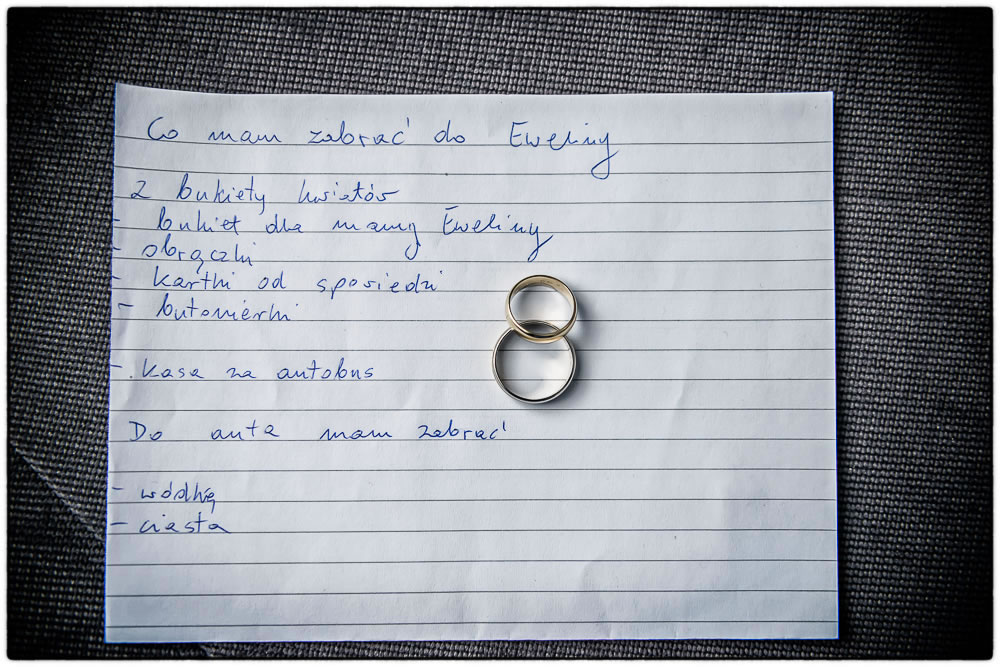 Co mam zabrać do Eweliny
2 bukiety kwiatów
- bukiet dla mamy Eweliny
- obrączki
- kartki od spowiedzi
- butonierki
- kasa za autobus
Do auta mam zabrać
- wódkę
- ciasta